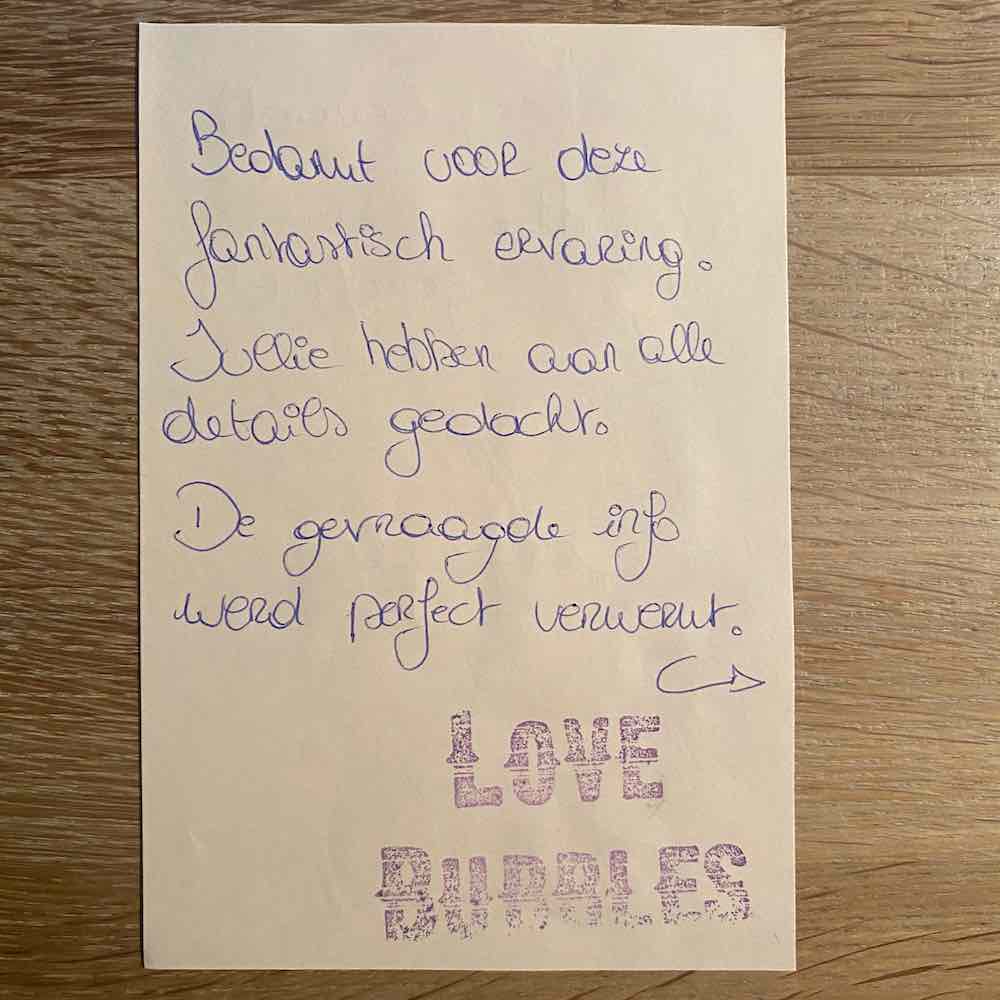 Bedankt voor deze
fantastisch ervaring.
Jullie hebben aan alle
details gedacht.
De gevraagde info
werd perfect verwerkt.
LOVE
BUBBLES